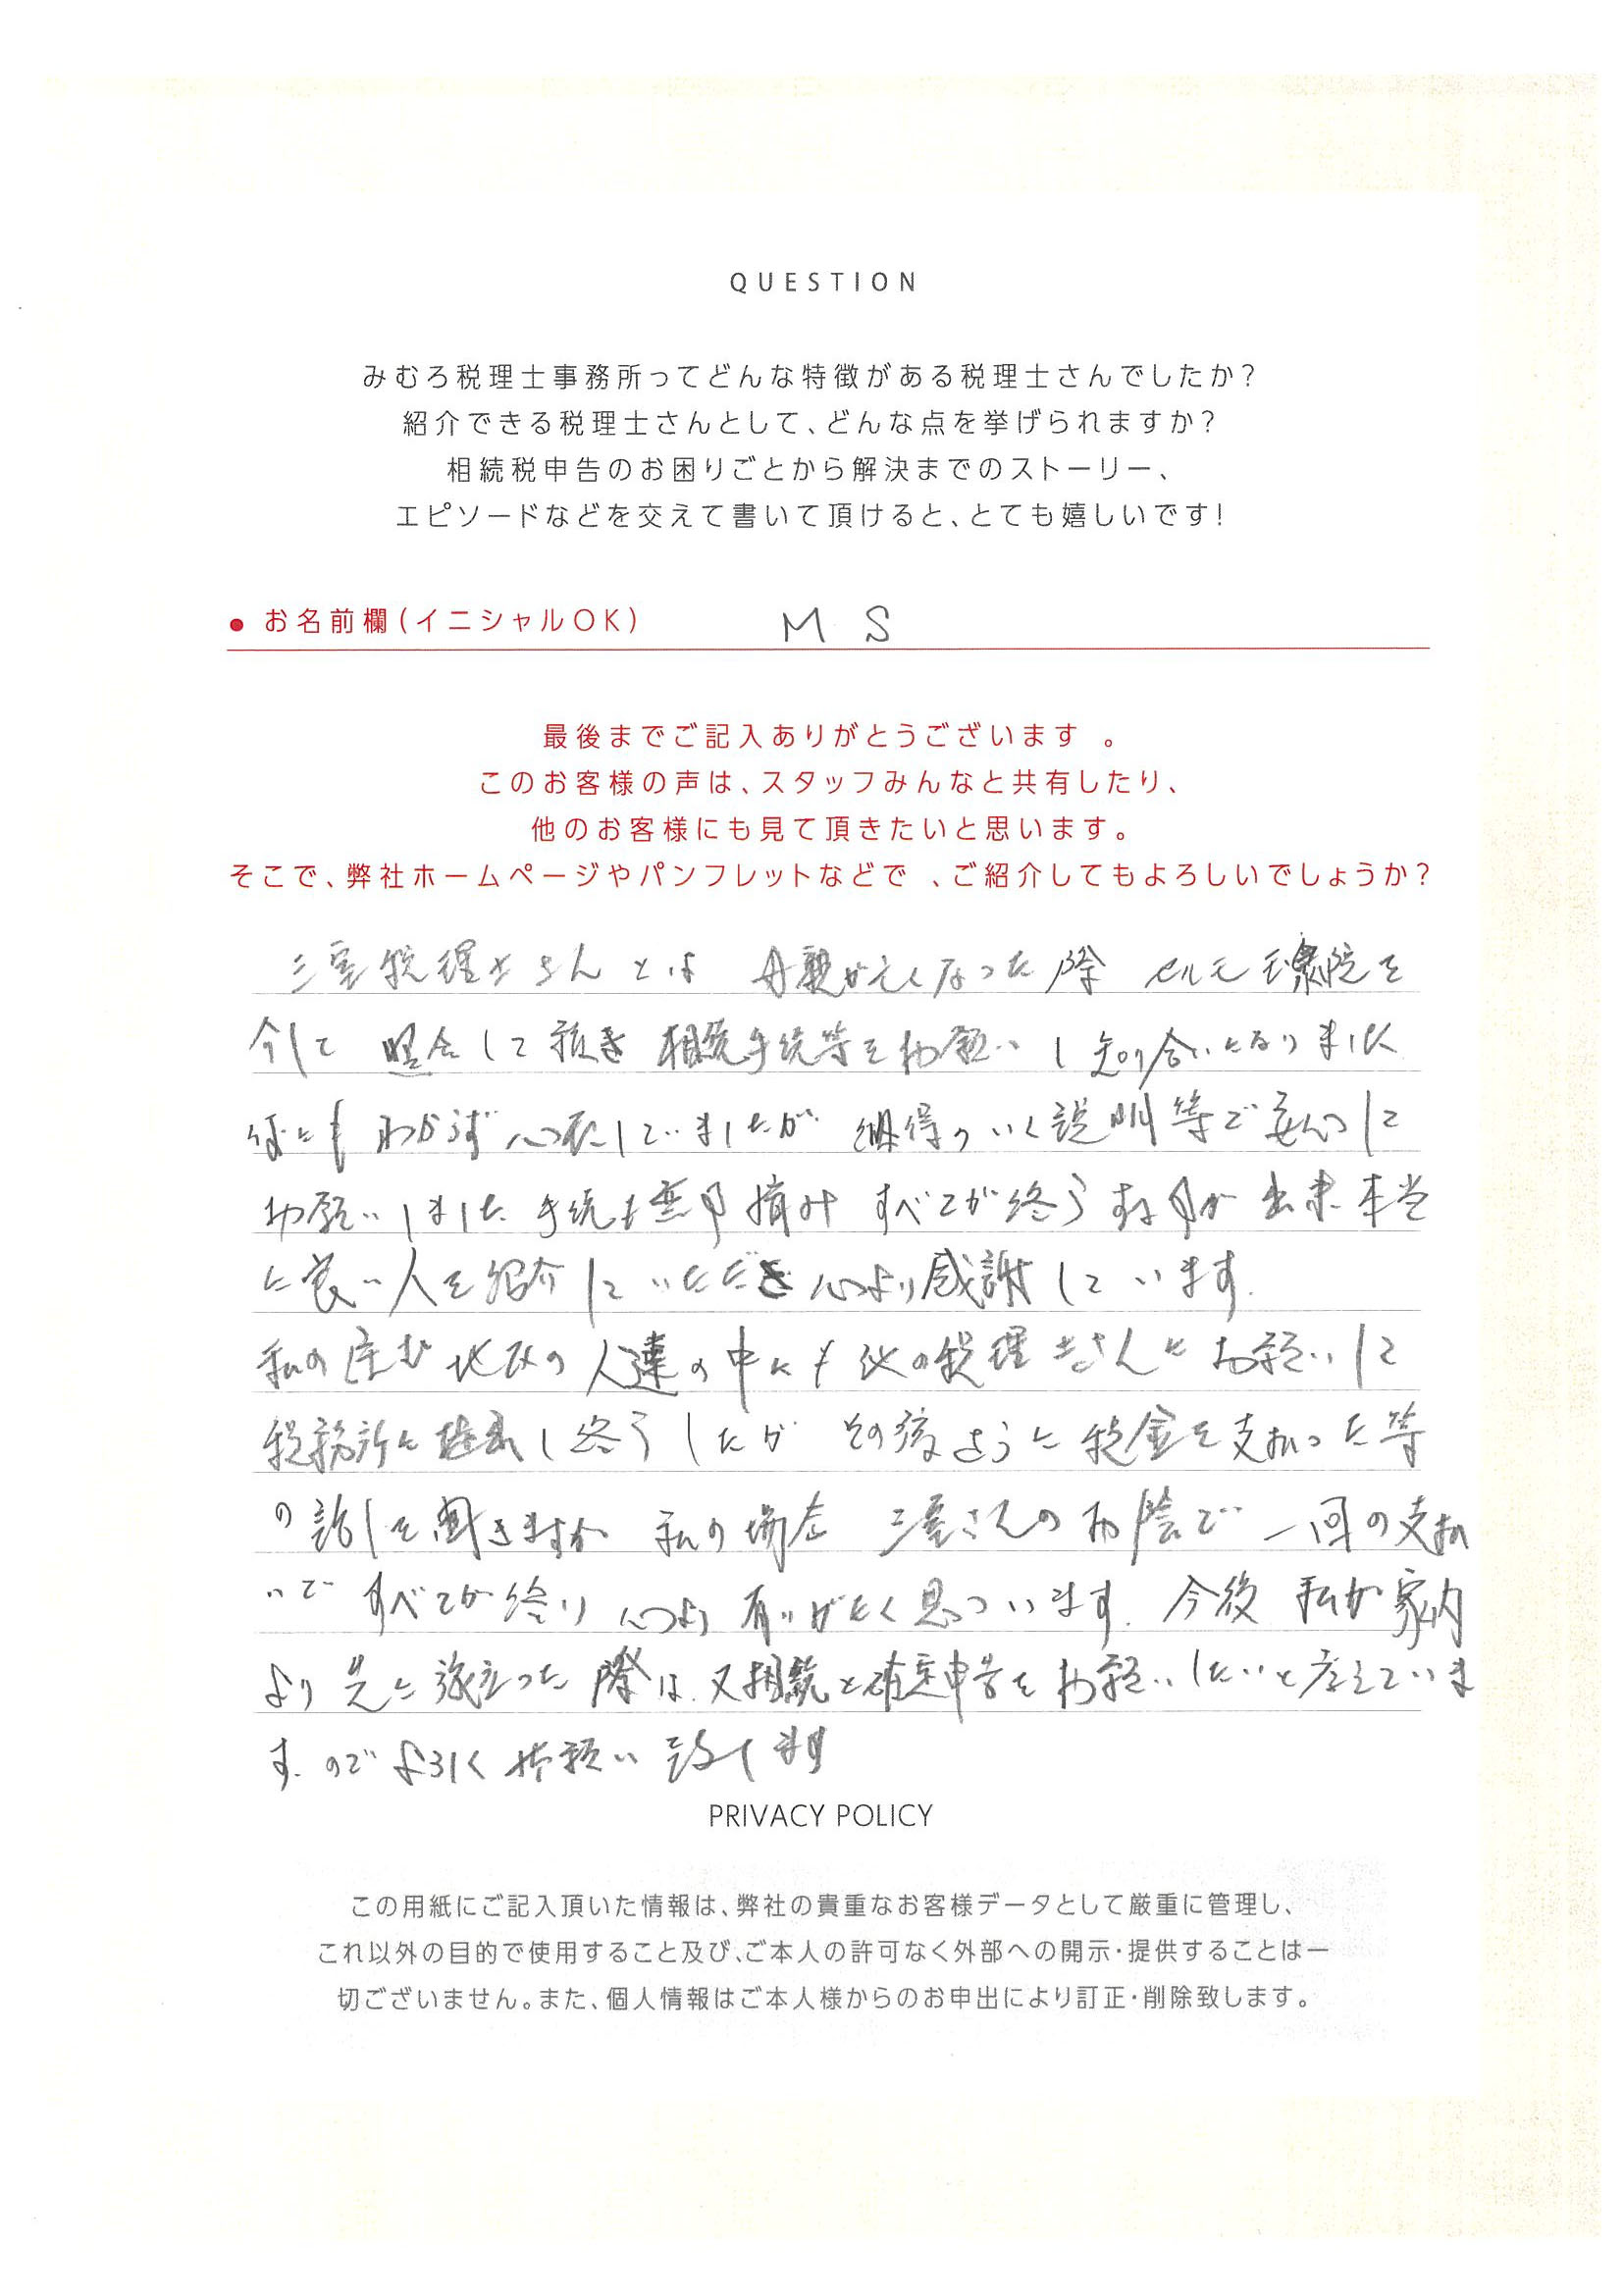 QUESTION
みむろ税理士事務所ってどんな特徴がある税理士さんでしたか?
紹介できる税理士さんとして、どんな点を挙げられますか?
相続税申告のお困りごとから解決までのストーリー、
エピソードなどを交えて書いて頂けると、とても嬉しいです!
● お名前欄(イニシャルOK) M S
最後までご記入ありがとうございます 。
このお客様の声は、スタッフみんなと共有したり、
他のお客様にも見て頂きたいと思います。
そこで、弊社ホームページやパンフレットなどで 、ご紹介してもよろしいでしょうか?
三室税理士さんとは 母親が亡くなった際 セルモ玉泉院を
介して 紹介して頂き 相続手続等をお願いし 知り合いになりました
何にもわからず心配していましたが 納得のいく説明等で安心して
お願いしました 手続も無事済み すべてが終了する事が出来 本当
に良い人を紹介していただき 心より感謝しています.
私の住む地区の人達の中にも他の税理士さんにお願いして
税務所に提出し終了したが その後 さらに税金を支払った等
の話しを聞きますが 私の場合 三室さんのお陰で 一回の支払
いで すべてが終り 心より有りがたく思っています. 今後 私が家内
より先に旅立った際は、又相続と確定申告をお願いしたいと考えていま
す.のでよろしくお願い致します
PRIVACY POLICY
この用紙にご記入頂いた情報は、弊社の貴重なお客様データとして厳重に管理し、
これ以外の目的で使用すること及び、ご本人の許可なく外部への開示・提供することは一
切ございません。また、個人情報はご本人様からのお申出により訂正・削除致します。